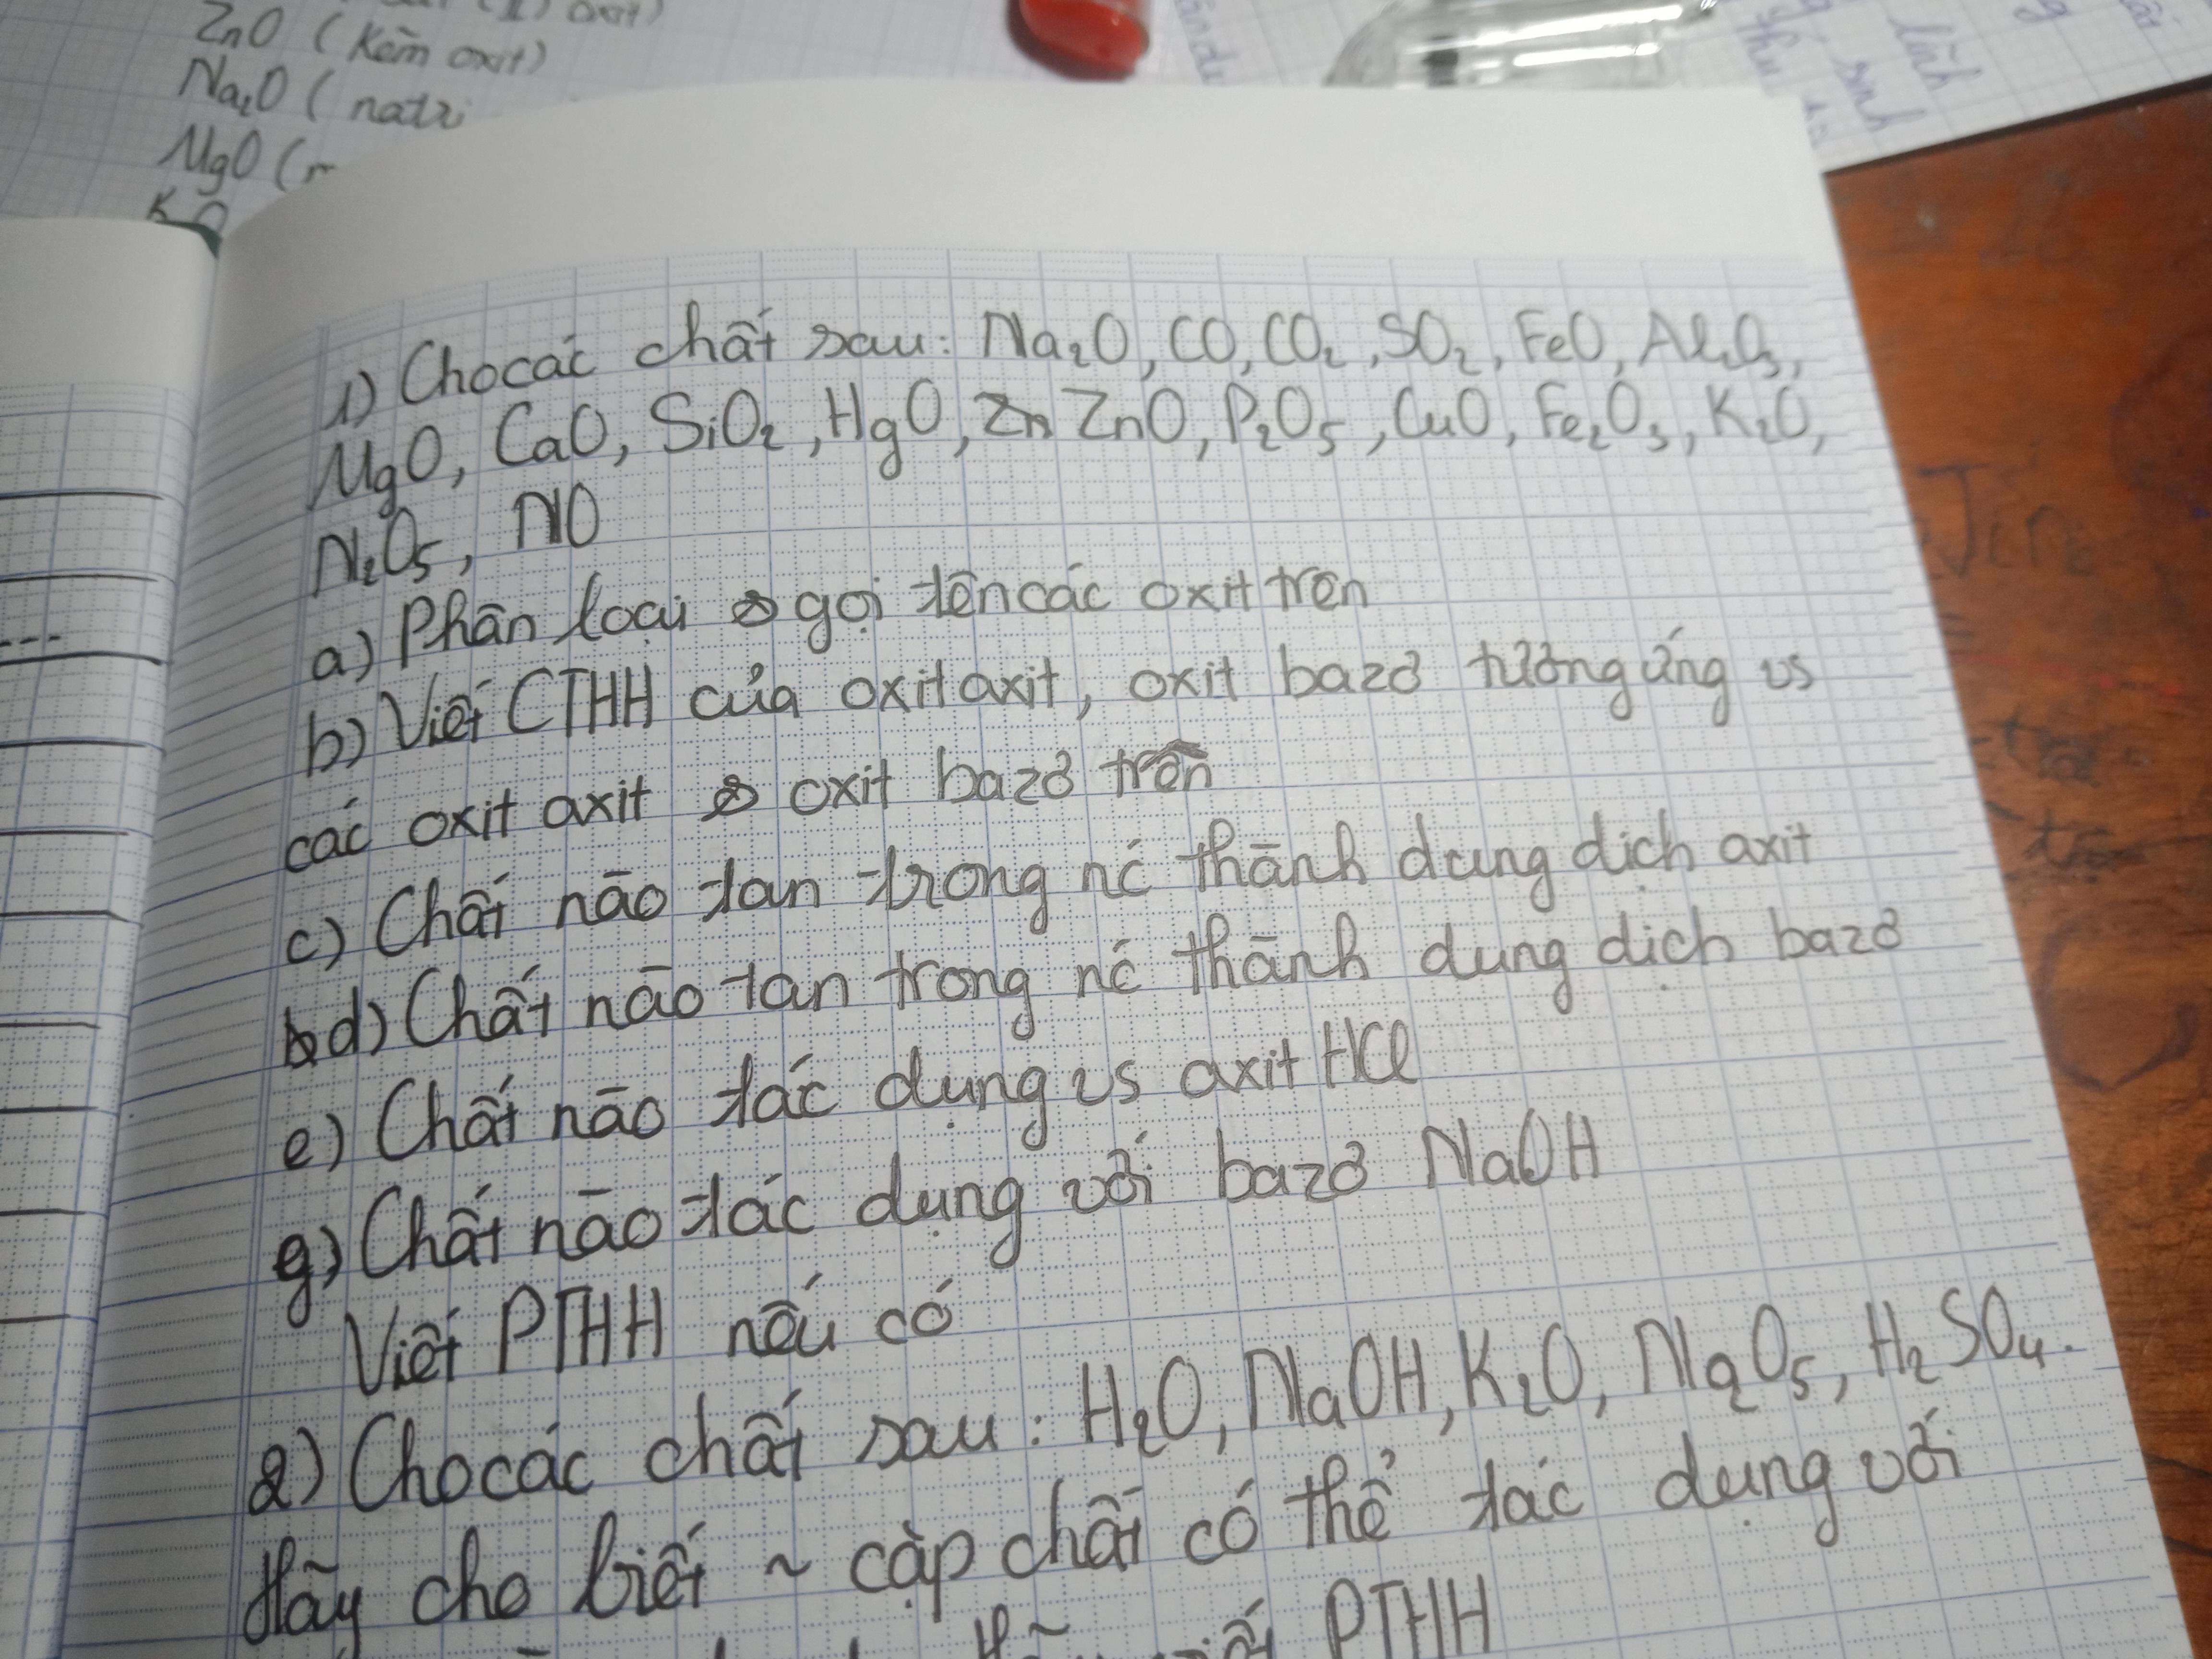 ZnO (Kẽm oxit)
Na₂O (natri
MgO (
1) Cho các chất sau: Na₂O, CO, CO₂, SO₂, FeO, Al₂O₃,
MgO, CaO, SiO₂, HgO, Zn ZnO, P₂O₅, CuO, Fe₂O₃, K₂O,
N₂O₅, NO
a) Phân loại & gọi tên các oxit trên
b) Viết CTHH của oxit axit, oxit bazơ tương ứng vs
các oxit axit & oxit bazơ trên
c) Chất nào tan trong nc thành dung dịch axit
bd) Chất nào tan trong nc thành dung dịch bazơ
e) Chất nào tác dụng vs axit HCl
g) Chất nào tác dụng với bazơ NaOH
Viết PTHH nếu có
2) Cho các chất sau: H₂O, NaOH, K₂O, N₂O₅, H₂SO₄.
Hãy cho biết ~ cặp chất có thể tác dụng với
PTHH